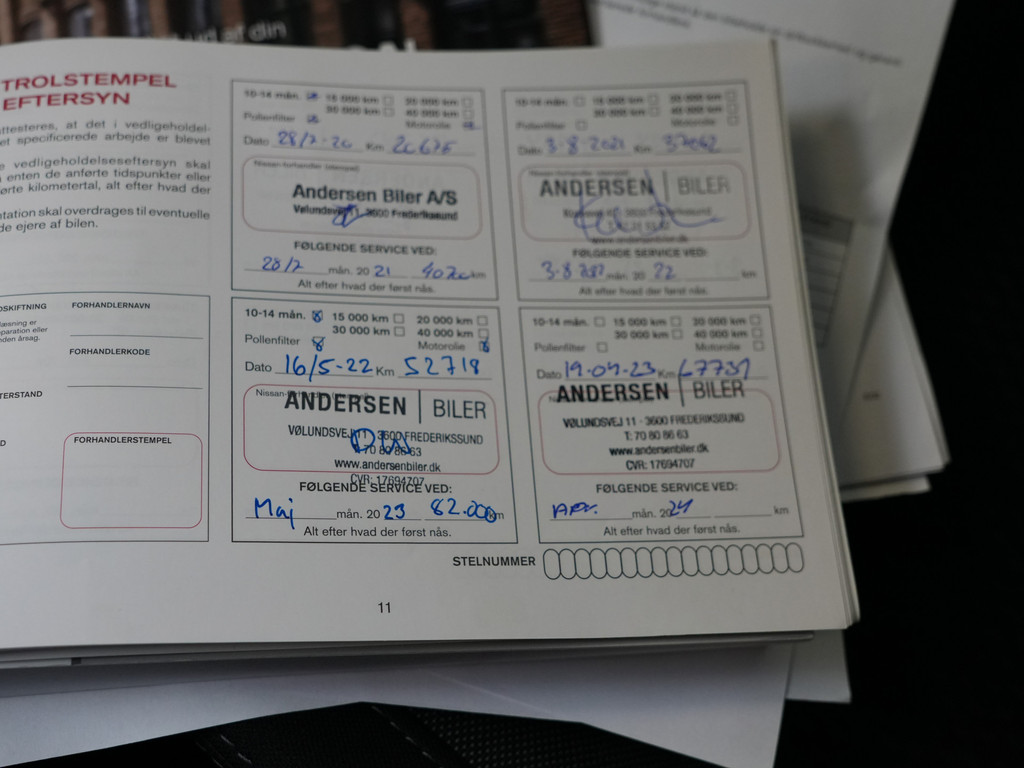 ud af din
TROLSTEMPEL
EFTERSYN
ttesteres, at det i vedligeholdel-
et specificerede arbejde er blevet
vedligeholdelseseftersyn skal
enten de anførte tidspunkter eller
ørte kilometertal, alt efter hvad der
tation skal overdrages til eventuelle
de ejere af bilen.
OSKIFTNING
FORHANDLERNAVN
læsning er
eparation eller
nden årsag.
FORHANDLERKODE
TERSTAND
FORHANDLERSTEMPEL
10-14 mån. 15 000 km 20 000 km
30 000 km 40 000 km
Pollenfilter Motorolie
Dato 28/7-20 Km
Nissan-forhandler (stempel)
Andersen Biler A/S
Vølundsvej 11 3600 Frederikssund
FØLGENDE SERVICE VED:
28/7 mån. 20 21 km
Alt efter hvad der først nås.
10-14 mån. 15 000 km 20 000 km
30 000 km 40 000 km
Pollenfilter Motorolie
Dato 3-8-2021 Km 37062
Nissan-forhandler (stempel)
ANDERSEN | BILER
3600 Frederikssund
www.andersenbiler.dk
FØLGENDE SERVICE VED:
3-8 mån. 20 22 km
Alt efter hvad der først nås.
10-14 mån. 15 000 km 20 000 km
30 000 km 40 000 km
Pollenfilter Motorolie
Dato 16/5-22 Km 52718
ANDERSEN | BILER
VØLUNDSVEJ 11 - 3600 FREDERIKSSUND
T: 70 80 86 63
www.andersenbiler.dk
CVR: 17694707
FØLGENDE SERVICE VED:
Maj mån. 20 23 82.000 km
Alt efter hvad der først nås.
10-14 mån. 15 000 km 20 000 km
30 000 km 40 000 km
Pollenfilter Motorolie
Dato 19-04-23 Km 67731
ANDERSEN | BILER
VØLUNDSVEJ 11 - 3600 FREDERIKSSUND
T: 70 80 86 63
www.andersenbiler.dk
CVR: 17694707
FØLGENDE SERVICE VED:
Apr. mån. 20 24 km
Alt efter hvad der først nås.
STELNUMMER
11